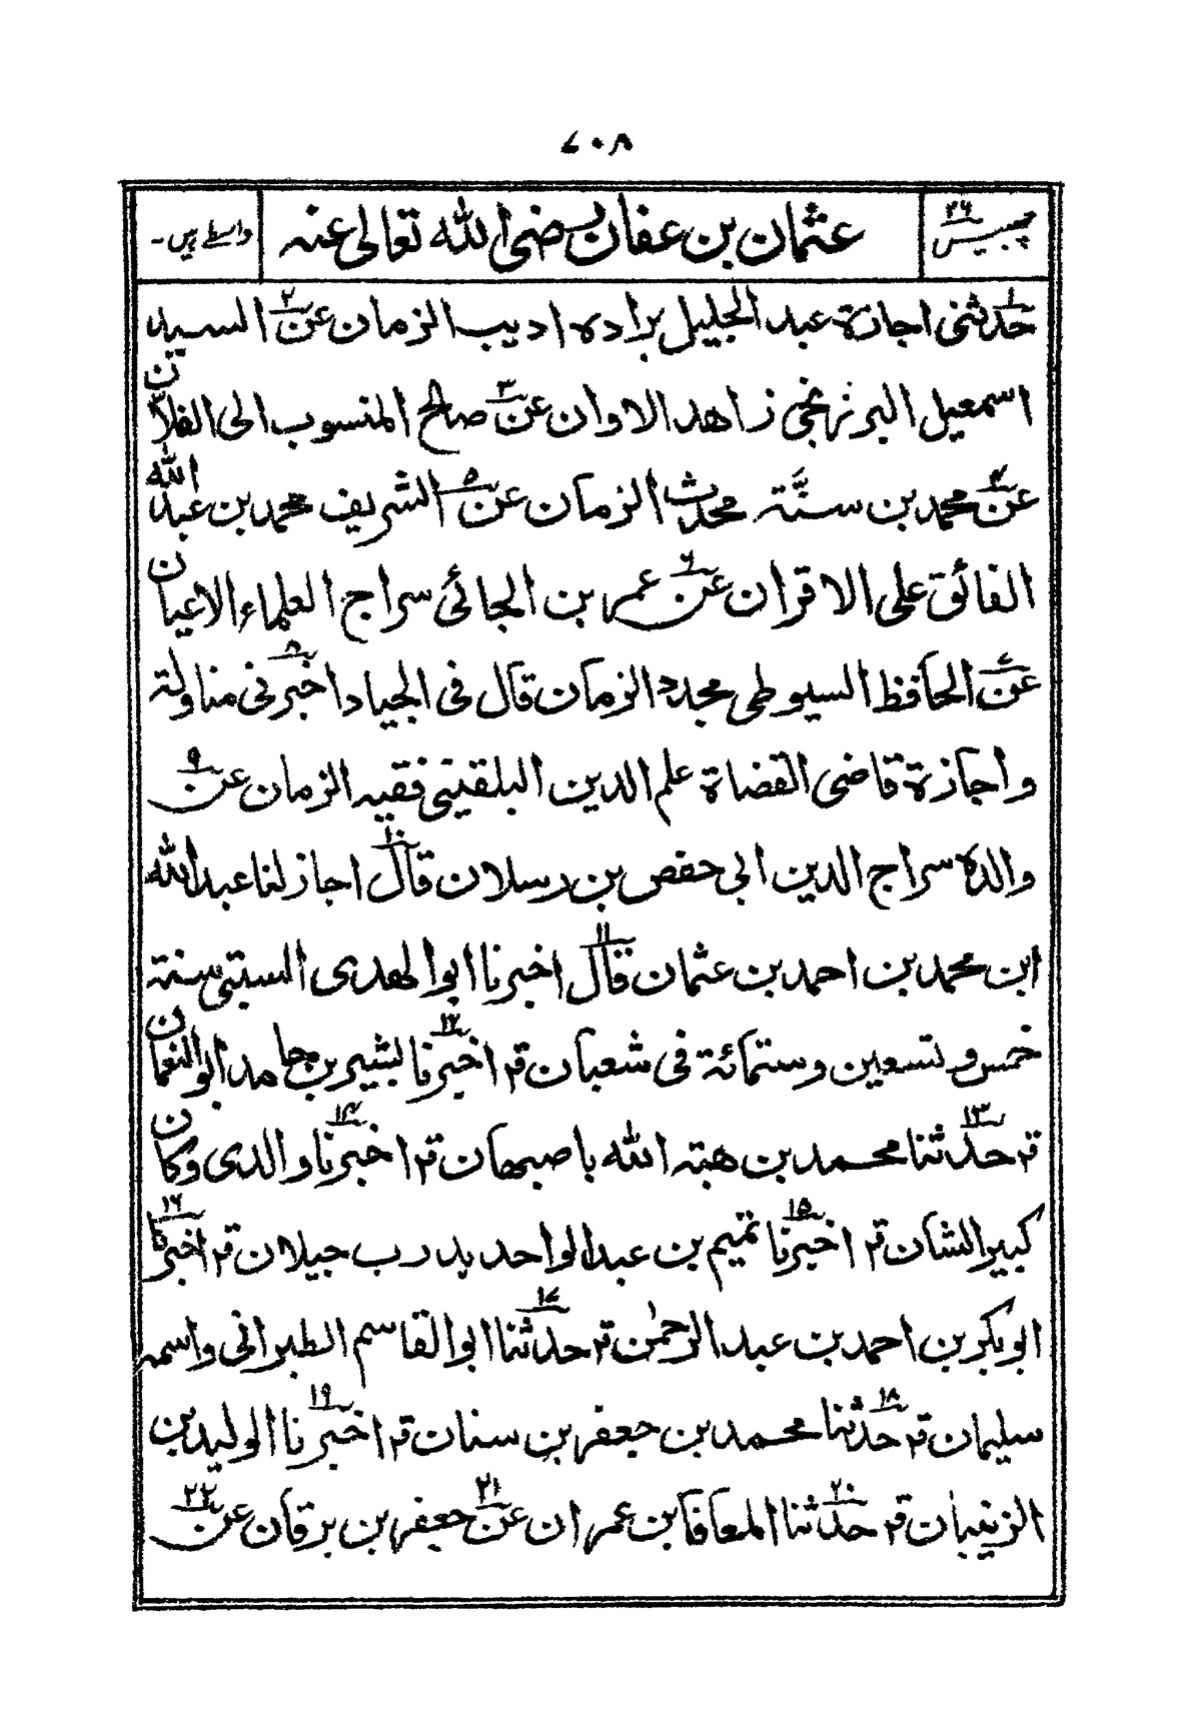 ۷۰۸
۲۶ چھبیس عثمان بن عفان رضی الله تعالی عنہ واسطے ہیں۔
حدثنی۱ اجازة عبد الجلیل برادہ ادیب الزمان عن۲ السید
اسمعیل البرزنجی زاهد الاوان عن۳ صالح المنسوب الی الفلان
عن۴ محمد بن سنَّتہ محدث الزمان عن۵ الشریف محمد بن عبد الله
الفائق علی الاقران عن۶ عمر بن الجائی سراج العلماء الاعیان
عن۷ الحافظ السیوطی مجدد الزمان قال فی الجیاد اخبرنی۸ مناولة
واجازة قاضی القضاة علم الدین البلقینی فقیہ الزمان عن۹
والدہ سراج الدین ابی حفص بن رسلان قال۱۰ اجاز لنا عبد الله
ابن محمد بن احمد بن عثمان قال۱۱ اخبرنا ابو الهدی السبتی سنة
خمس وتسعین وستمائة فی شعبان قہ اخبرنا۱۲ بشیر بن حامد ابو النعمان
قہ حدثنا۱۳ محمد بن هبتہ الله باصبهان قہ اخبرنا۱۴ والدی وکان
کبیر الشان قہ اخبرنا۱۵ تمیم بن عبد الواحد بدرب جیلان قہ اخبرنا۱۶
ابوبکر بن احمد بن عبد الرحمٰن قہ حدثنا۱۷ ابو القاسم الطبرانی واسمہ
سلیمان قہ حدثنا۱۸ محمد بن جعفر بن سنان قہ اخبرنا۱۹ الولید بن
الزینبان قہ حدثنا۲۰ المعافا بن عمران عن۲۱ جعفر بن برقان عن۲۲